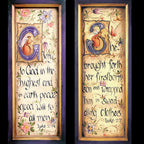 to God in the
highest and
on earth peace
good will to
all men
brought forth
her firstborn
son and wrapped
him in Swadd
ling clothes